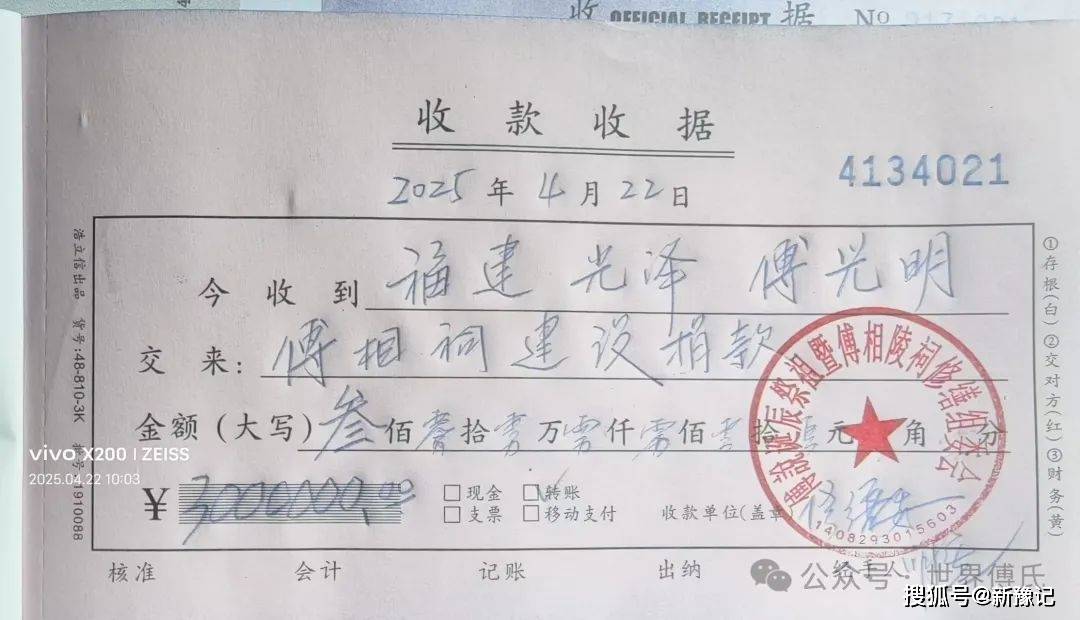 收 OFFICIAL RECEIPT 据 No
收款收据
4134021
2025年4月22日
今收到 福建光泽 傅光明
交来：傅相祠建设捐款
金额（大写）叁佰零拾零万零仟零佰零拾零元 角 分
¥3000000.00
□现金 □转账
□支票 □移动支付
收款单位(盖章
核准 会计 记账 出纳 经手人：
浩立信出品 货号:48-810-3K
1910088
①存根(白)②交对方(红)③财务(黄)
诞辰祭祖暨傅相陵祠修缮组委会
1408293015603
vivo X200 | ZEISS
2025.04.22 10:03
公众号 · 世界傅氏
搜狐号@新豫记